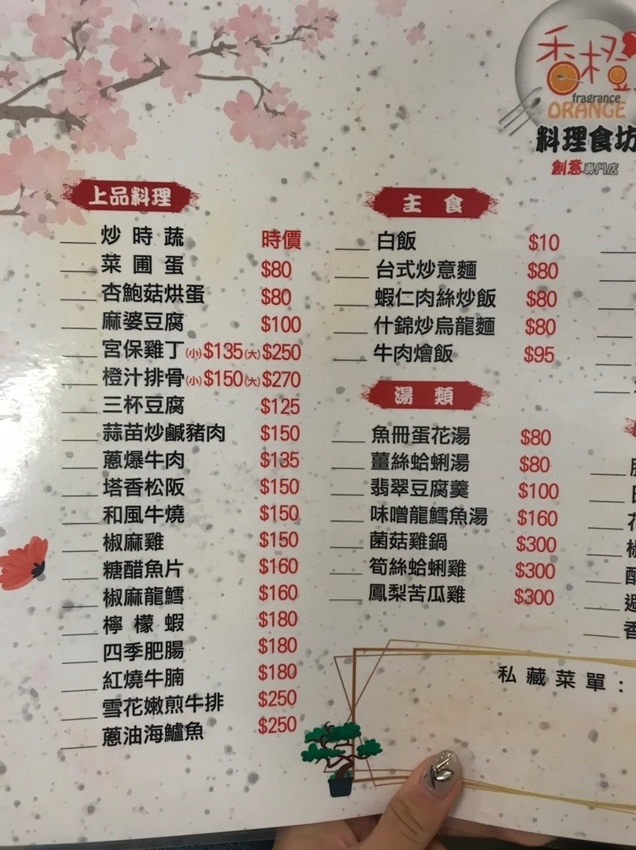 香橙
fragrance
ORANGE
料理食坊
創意專門店
上品料理
炒時蔬 時價
菜圃蛋 $80
杏鮑菇烘蛋 $80
麻婆豆腐 $100
宮保雞丁(小)$135(大)$250
橙汁排骨(小)$150(大)$270
三杯豆腐 $125
蒜苗炒鹹豬肉 $150
蔥爆牛肉 $135
塔香松阪 $150
和風牛燒 $150
椒麻雞 $150
糖醋魚片 $160
椒麻龍鱈 $160
檸檬蝦 $180
四季肥腸 $180
紅燒牛腩 $180
雪花嫩煎牛排 $250
蔥油海鱸魚 $250
主食
白飯 $10
台式炒意麵 $80
蝦仁肉絲炒飯 $80
什錦炒烏龍麵 $80
牛肉燴飯 $95
湯類
魚冊蛋花湯 $80
薑絲蛤蜊湯 $80
翡翠豆腐羹 $100
味噌龍鱈魚湯 $160
菌菇雞鍋 $300
筍絲蛤蜊雞 $300
鳳梨苦瓜雞 $300
私藏菜單：